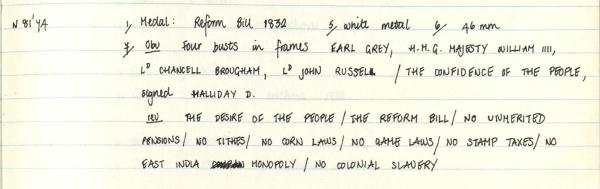 N 81'Y4 1, Medal: Reform Bill 1832 5, white metal 6, 46 mm
7, Obv Four busts in frames EARL GREY, H.M.G. MAJESTY WILLIAM IIII,
Lᴰ CHANCELL BROUGHAM, Lᴰ JOHN RUSSELL / THE CONFIDENCE OF THE PEOPLE,
signed HALLIDAY D.
rev THE DESIRE OF THE PEOPLE / THE REFORM BILL / NO UNMERITED
PENSIONS / NO TITHES / NO CORN LAWS / NO GAME LAWS / NO STAMP TAXES / NO
EAST INDIA MONOPOLY / NO COLONIAL SLAVERY